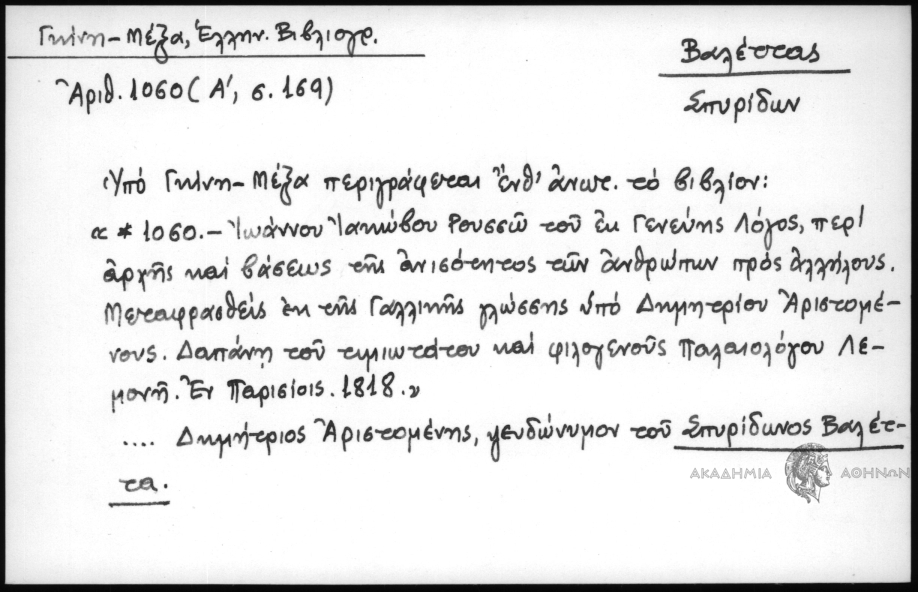 Γκίνη – Μέξα, Ἑλλην. Βιβλιογρ.
Ἀριθ. 1060 (Α΄, σ. 169)
Βαλέττας
Σπυρίδων
Ὑπό Γκίνη – Μέξα περιγράφεται ἔνθ' ἀνωτ. τό βιβλίον:
« * 1060. – Ἰωάννου Ἰακώβου Ρουσσῶ τοῦ ἐκ Γενεύης Λόγος, περί
ἀρχῆς καί βάσεως τῆς ἀνισότητος τῶν ἀνθρώπων πρός ἀλλήλους.
Μεταφρασθείς ἐκ τῆς Γαλλικῆς γλώσσης ὑπό Δημητρίου Ἀριστομέ-
νους. Δαπάνῃ τοῦ τιμιωτάτου καί φιλογενοῦς Παλαιολόγου Λε-
μονῆ. Ἐν Παρισίοις. 1818.»
.... Δημήτριος Ἀριστομένης, ψευδώνυμον τοῦ Σπυρίδωνος Βαλέτ-
τα.
ΑΚΑΔΗΜΙΑ ΑΘΗΝΩΝ